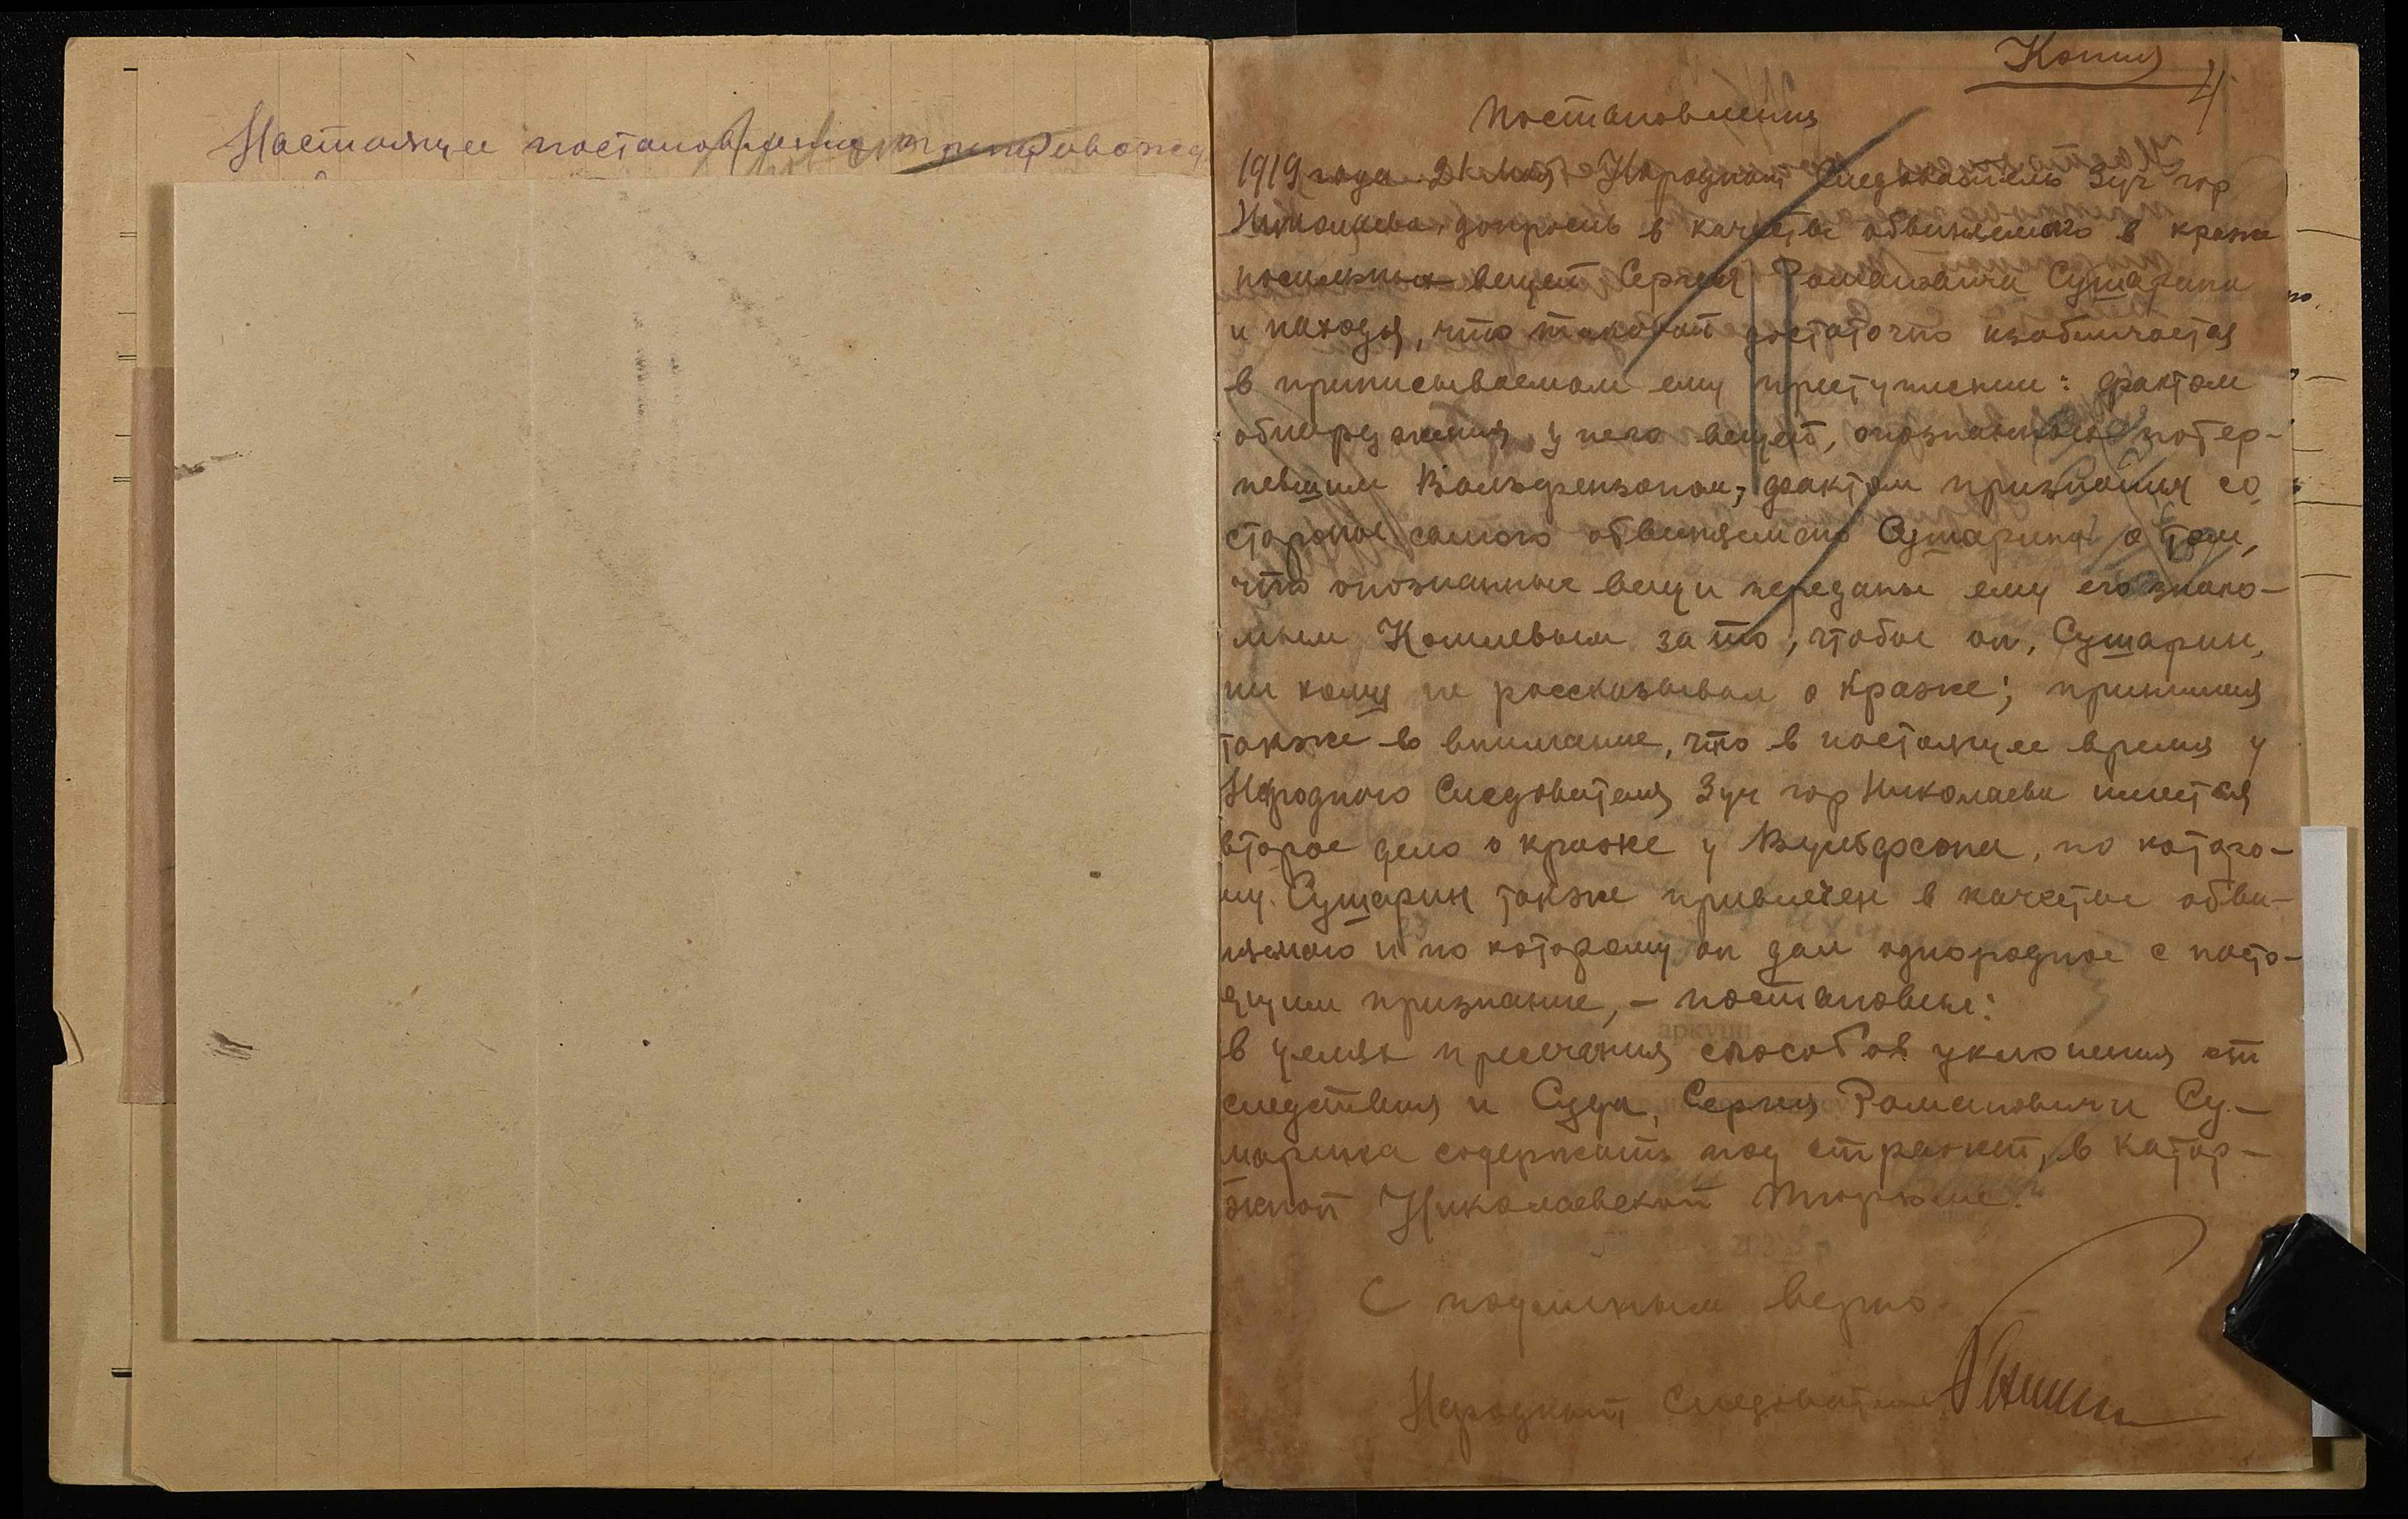 Настоящее постановление препровожд
Копия
4
Постановления
1919 года 21 мая Народный Следователь 3 уч гор
Николаева, допросив в качестве обвиняемого в краже
носильных вещей Сергея Романовича Сушарина
и находя, что таковой достаточно изобличается
в приписываемом ему преступлении: фактом
обнаружения у него вещей, опознанных потер-
певшим Вольфензоном; фактом признания со
стороны самого обвиняемого Сушарина о том,
что опознанные вещи переданы ему его знако-
мым Комлевым за то, чтобы он, Сушарин,
ни кому не рассказывал о краже; принимая
также во внимание, что в настоящее время у
Народного Следователя 3 уч гор Николаева имеется
второе дело о краже у Вульфсона, по которо-
му Сушарин также привлечен в качестве обви-
няемого и по которому он дал однородное с насто-
ящим признание, – постановил:
в целях пресечения способов уклонения от
следствия и Суда, Сергея Романовича Су-
шарина содержать под стражей, в катор-
жной Николаевской тюрьме.
С подлинным верно
Народный Следователь